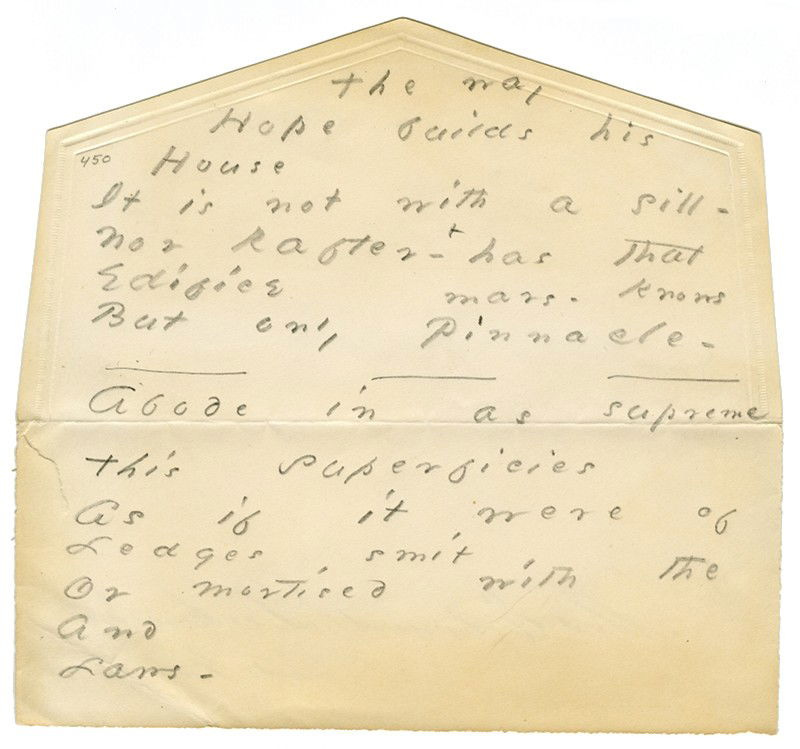 the way
Hope builds his
450
House
It is not with a sill -
Nor Rafter - + has that
Edifice mars - knows
But only Pinnacle -
Abode in as supreme
This superficies
As if it were of
Ledges smit
Or mortised with the
And
Laws -